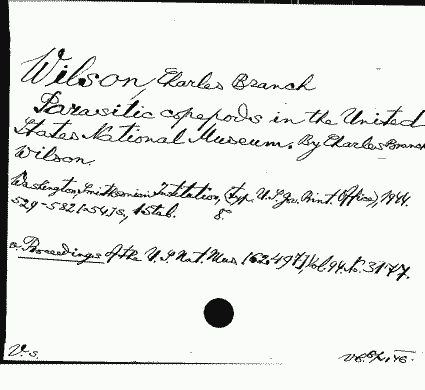 Wilson, Charles Branch
Parasitic copepods in the United
States National Museum. By Charles Branch
Wilson.
Washington, Smithsonian Institution, (typ. U.S. Gov. Print. Office), 1944.
529-582 [=54] s., 1 tab. 8.
a. Proceedings of the U.S. Nat. Mus. [62497], Vol. 94. No. 3177.
V.s.